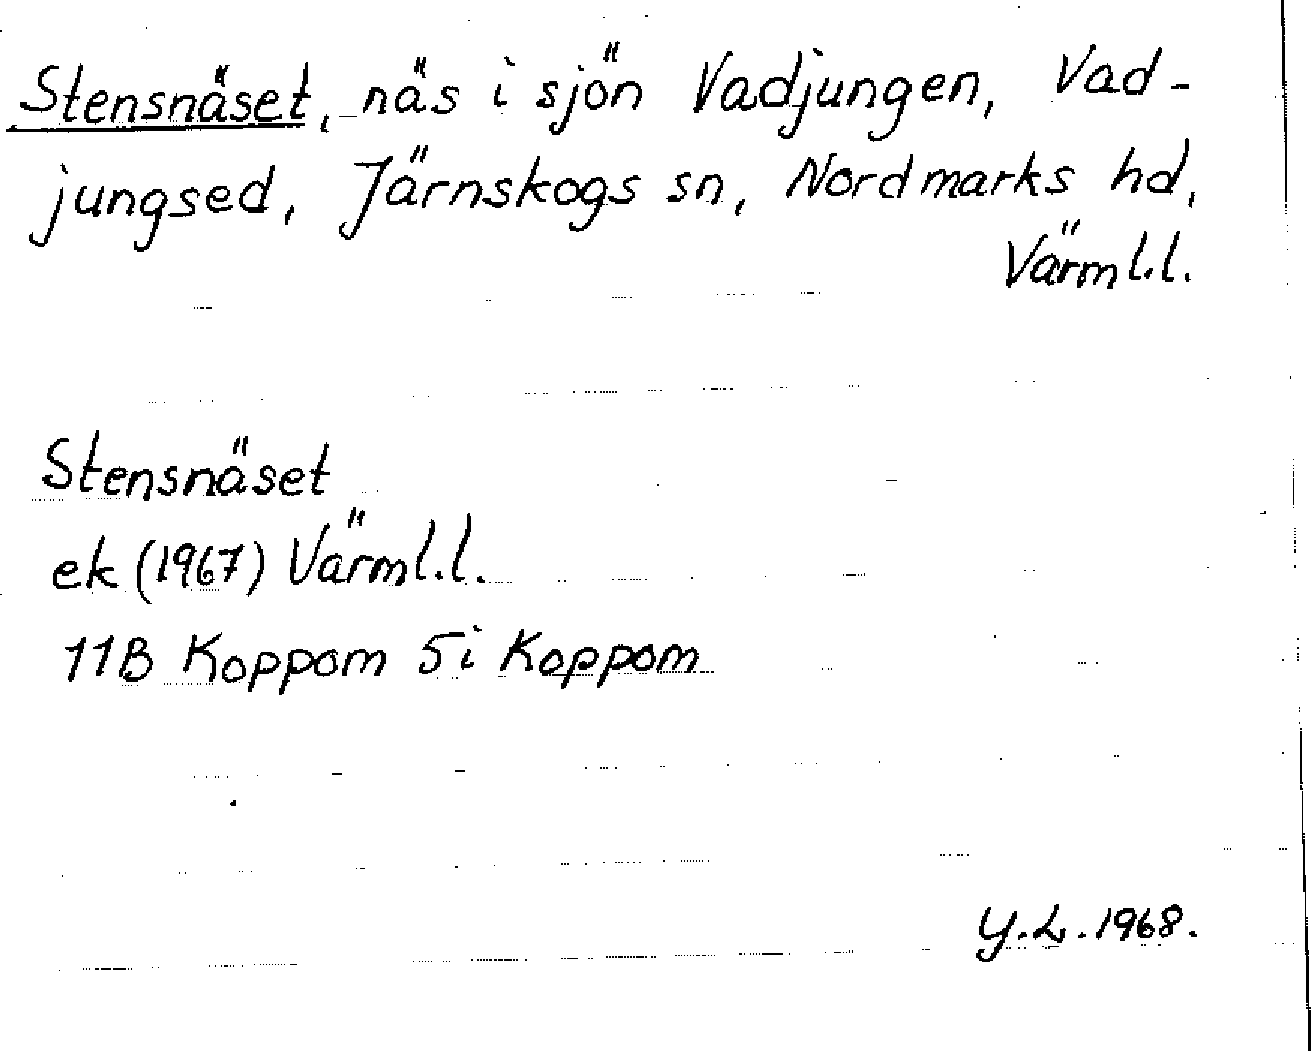 Stensnäset, näs i sjön Vadjungen, Vad-
jungsed, Järnskogs sn, Nordmarks hd,
Värml.l.
Stensnäset
ek (1967) Värml.l.
11B Koppom 5i Koppom
Y.L. 1968.